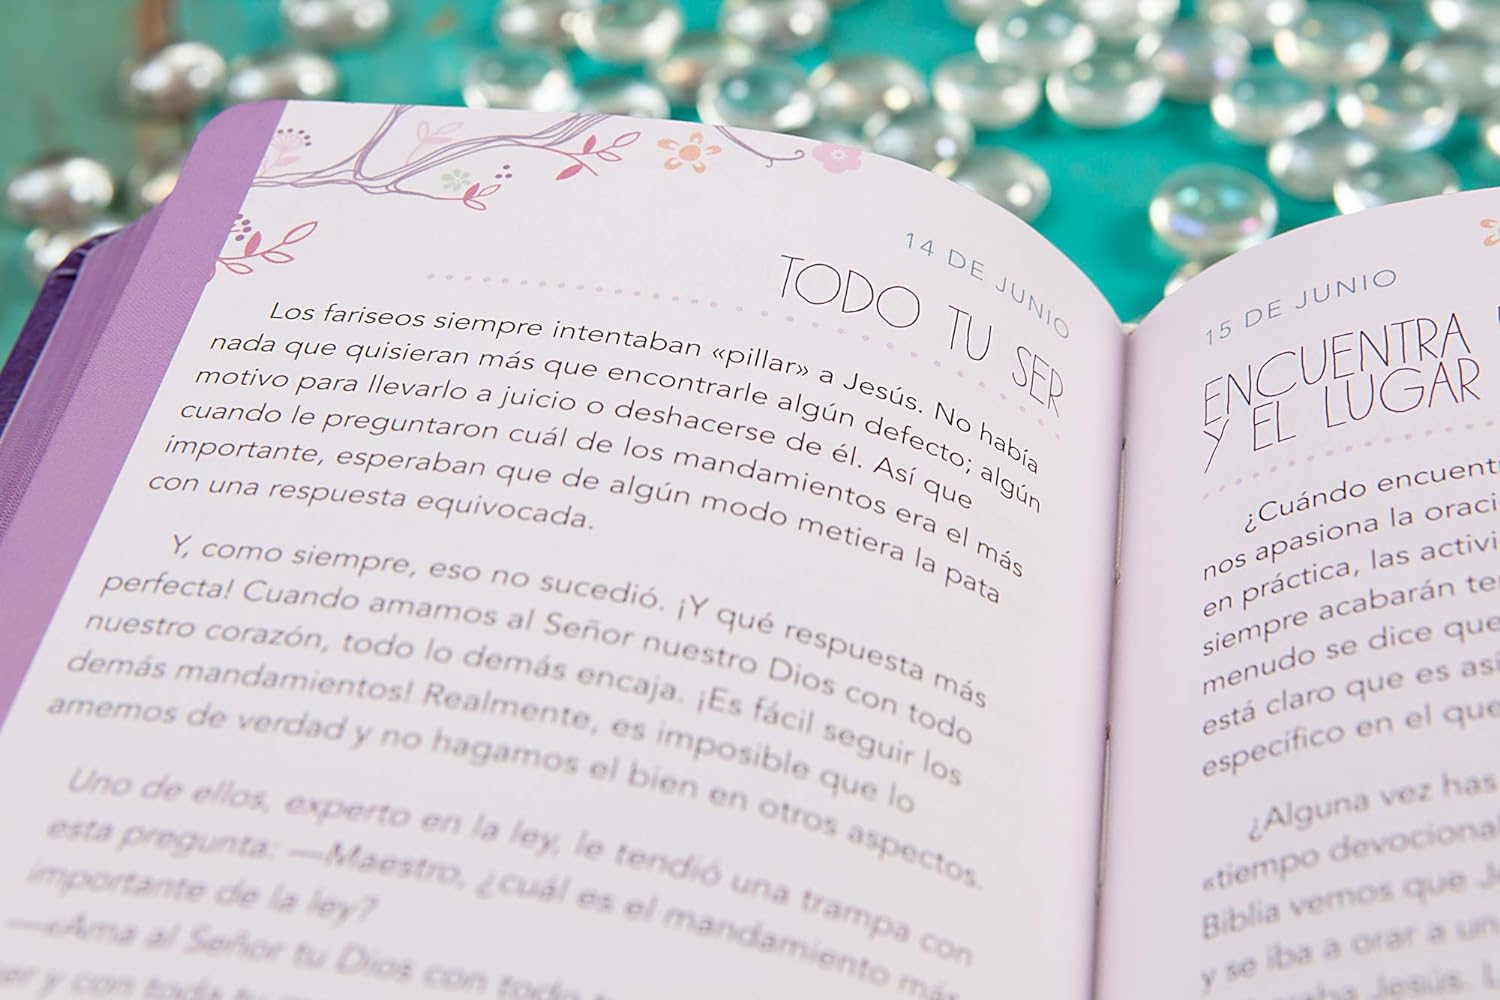 14 DE JUNIO
TODO TU SER
Los fariseos siempre intentaban «pillar» a Jesús. No había
nada que quisieran más que encontrarle algún defecto; algún
motivo para llevarlo a juicio o deshacerse de él. Así que
cuando le preguntaron cuál de los mandamientos era el más
importante, esperaban que de algún modo metiera la pata
con una respuesta equivocada.
Y, como siempre, eso no sucedió. ¡Y qué respuesta más
perfecta! Cuando amamos al Señor nuestro Dios con todo
nuestro corazón, todo lo demás encaja. ¡Es fácil seguir los
demás mandamientos! Realmente, es imposible que lo
amemos de verdad y no hagamos el bien en otros aspectos.
Uno de ellos, experto en la ley, le tendió una trampa con
esta pregunta: —Maestro, ¿cuál es el mandamiento más
importante de la ley?
—«Ama al Señor tu Dios con todo
y con toda
15 DE JUNIO
ENCUENTRA
Y EL LUGAR
¿Cuándo
nos apasiona la
en práctica, las
siempre acabarán
menudo se dice que
está claro que es
específico en el que
¿Alguna vez has
«tiempo
Biblia vemos que
y se iba a orar a
Jesús.